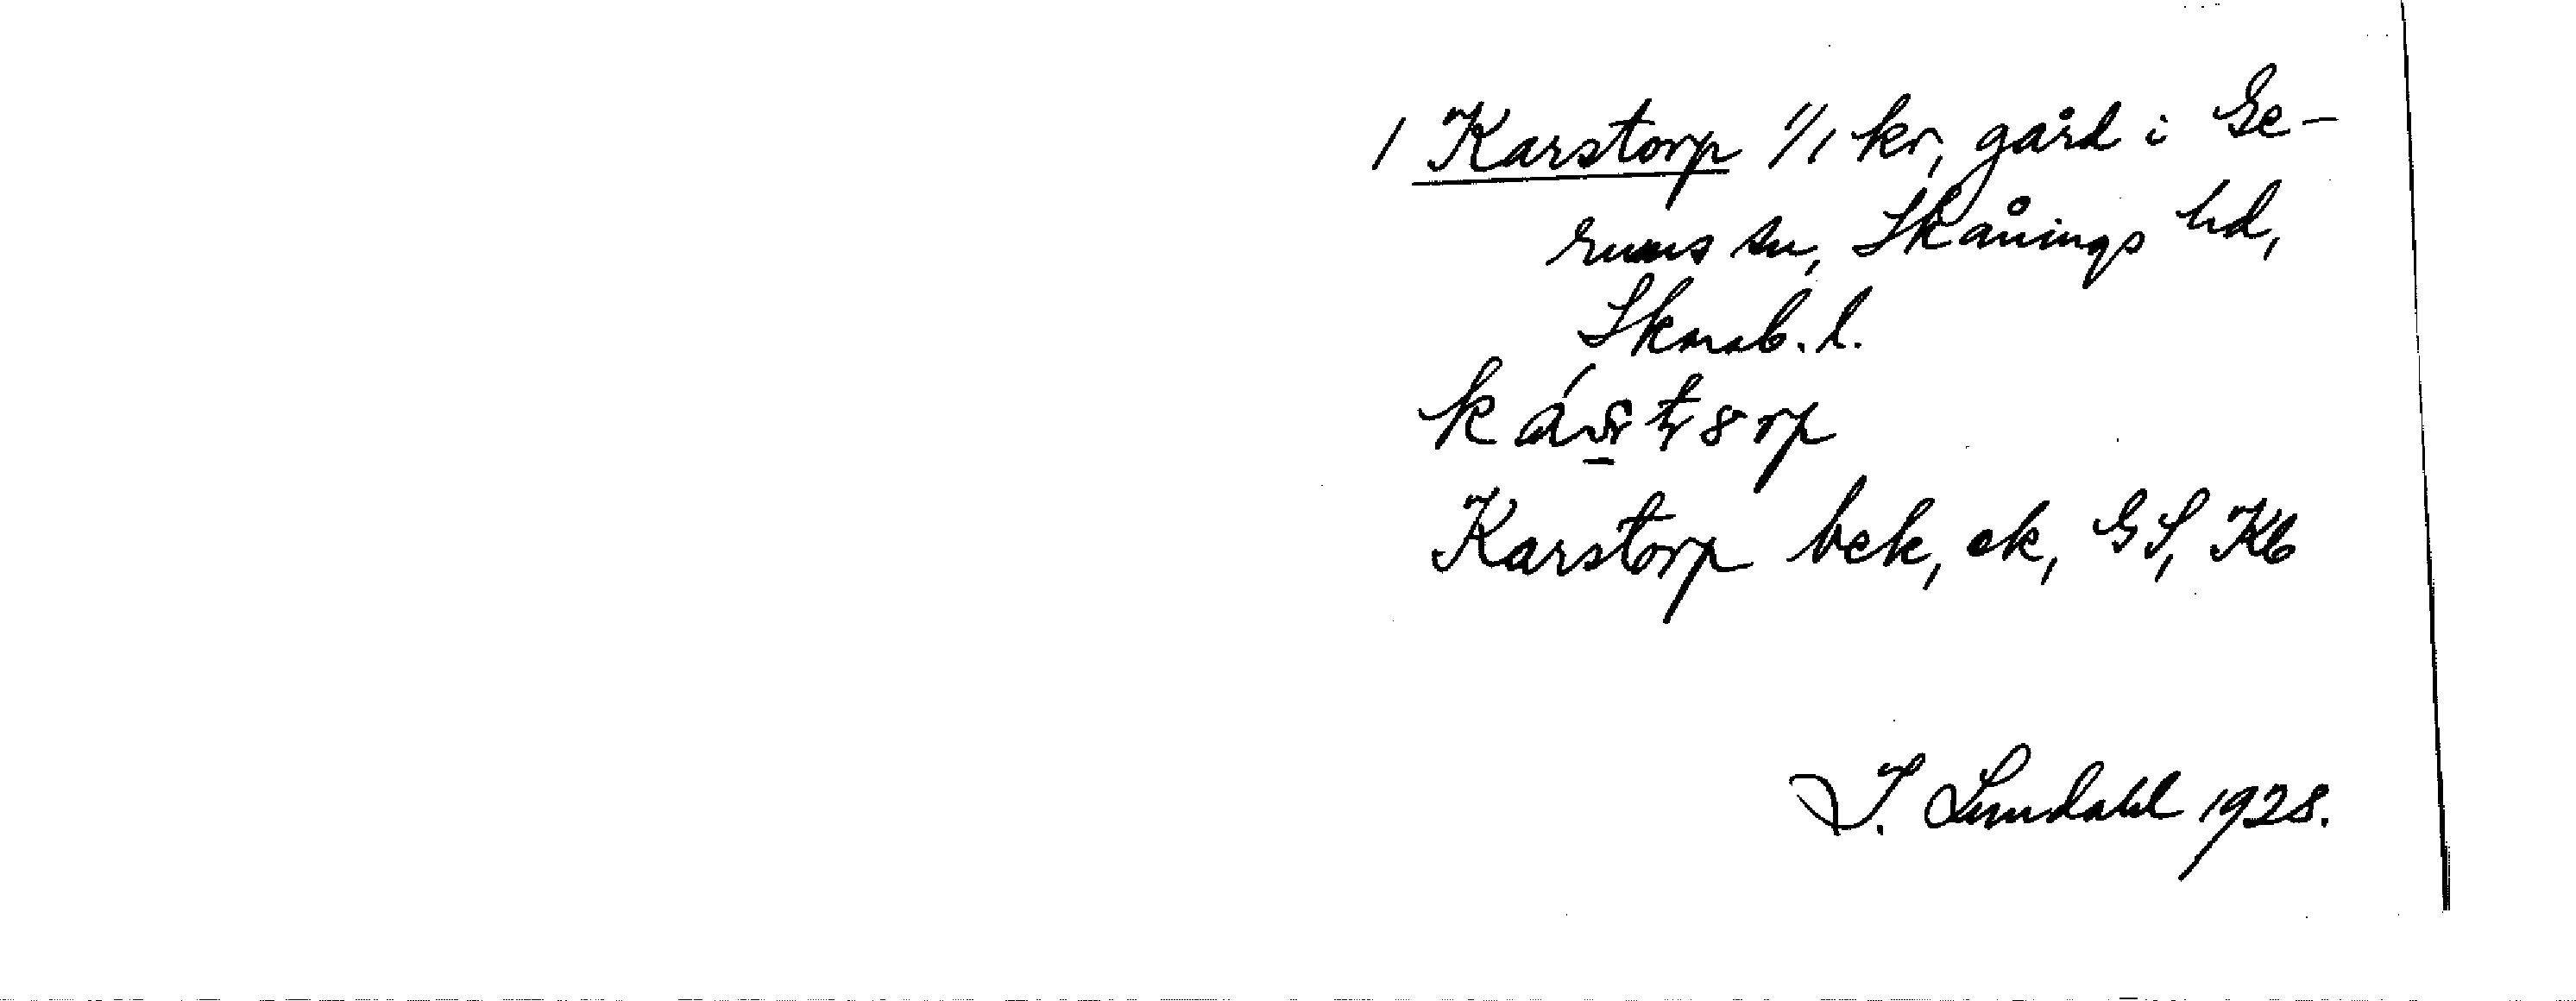 1 Karstorp 1/1 kr, gård i Ge-
rums sn, Skånings hd,
Skarab. l.
Karstorp bek, ek, GS, Kb
I. Lundahl 1928.